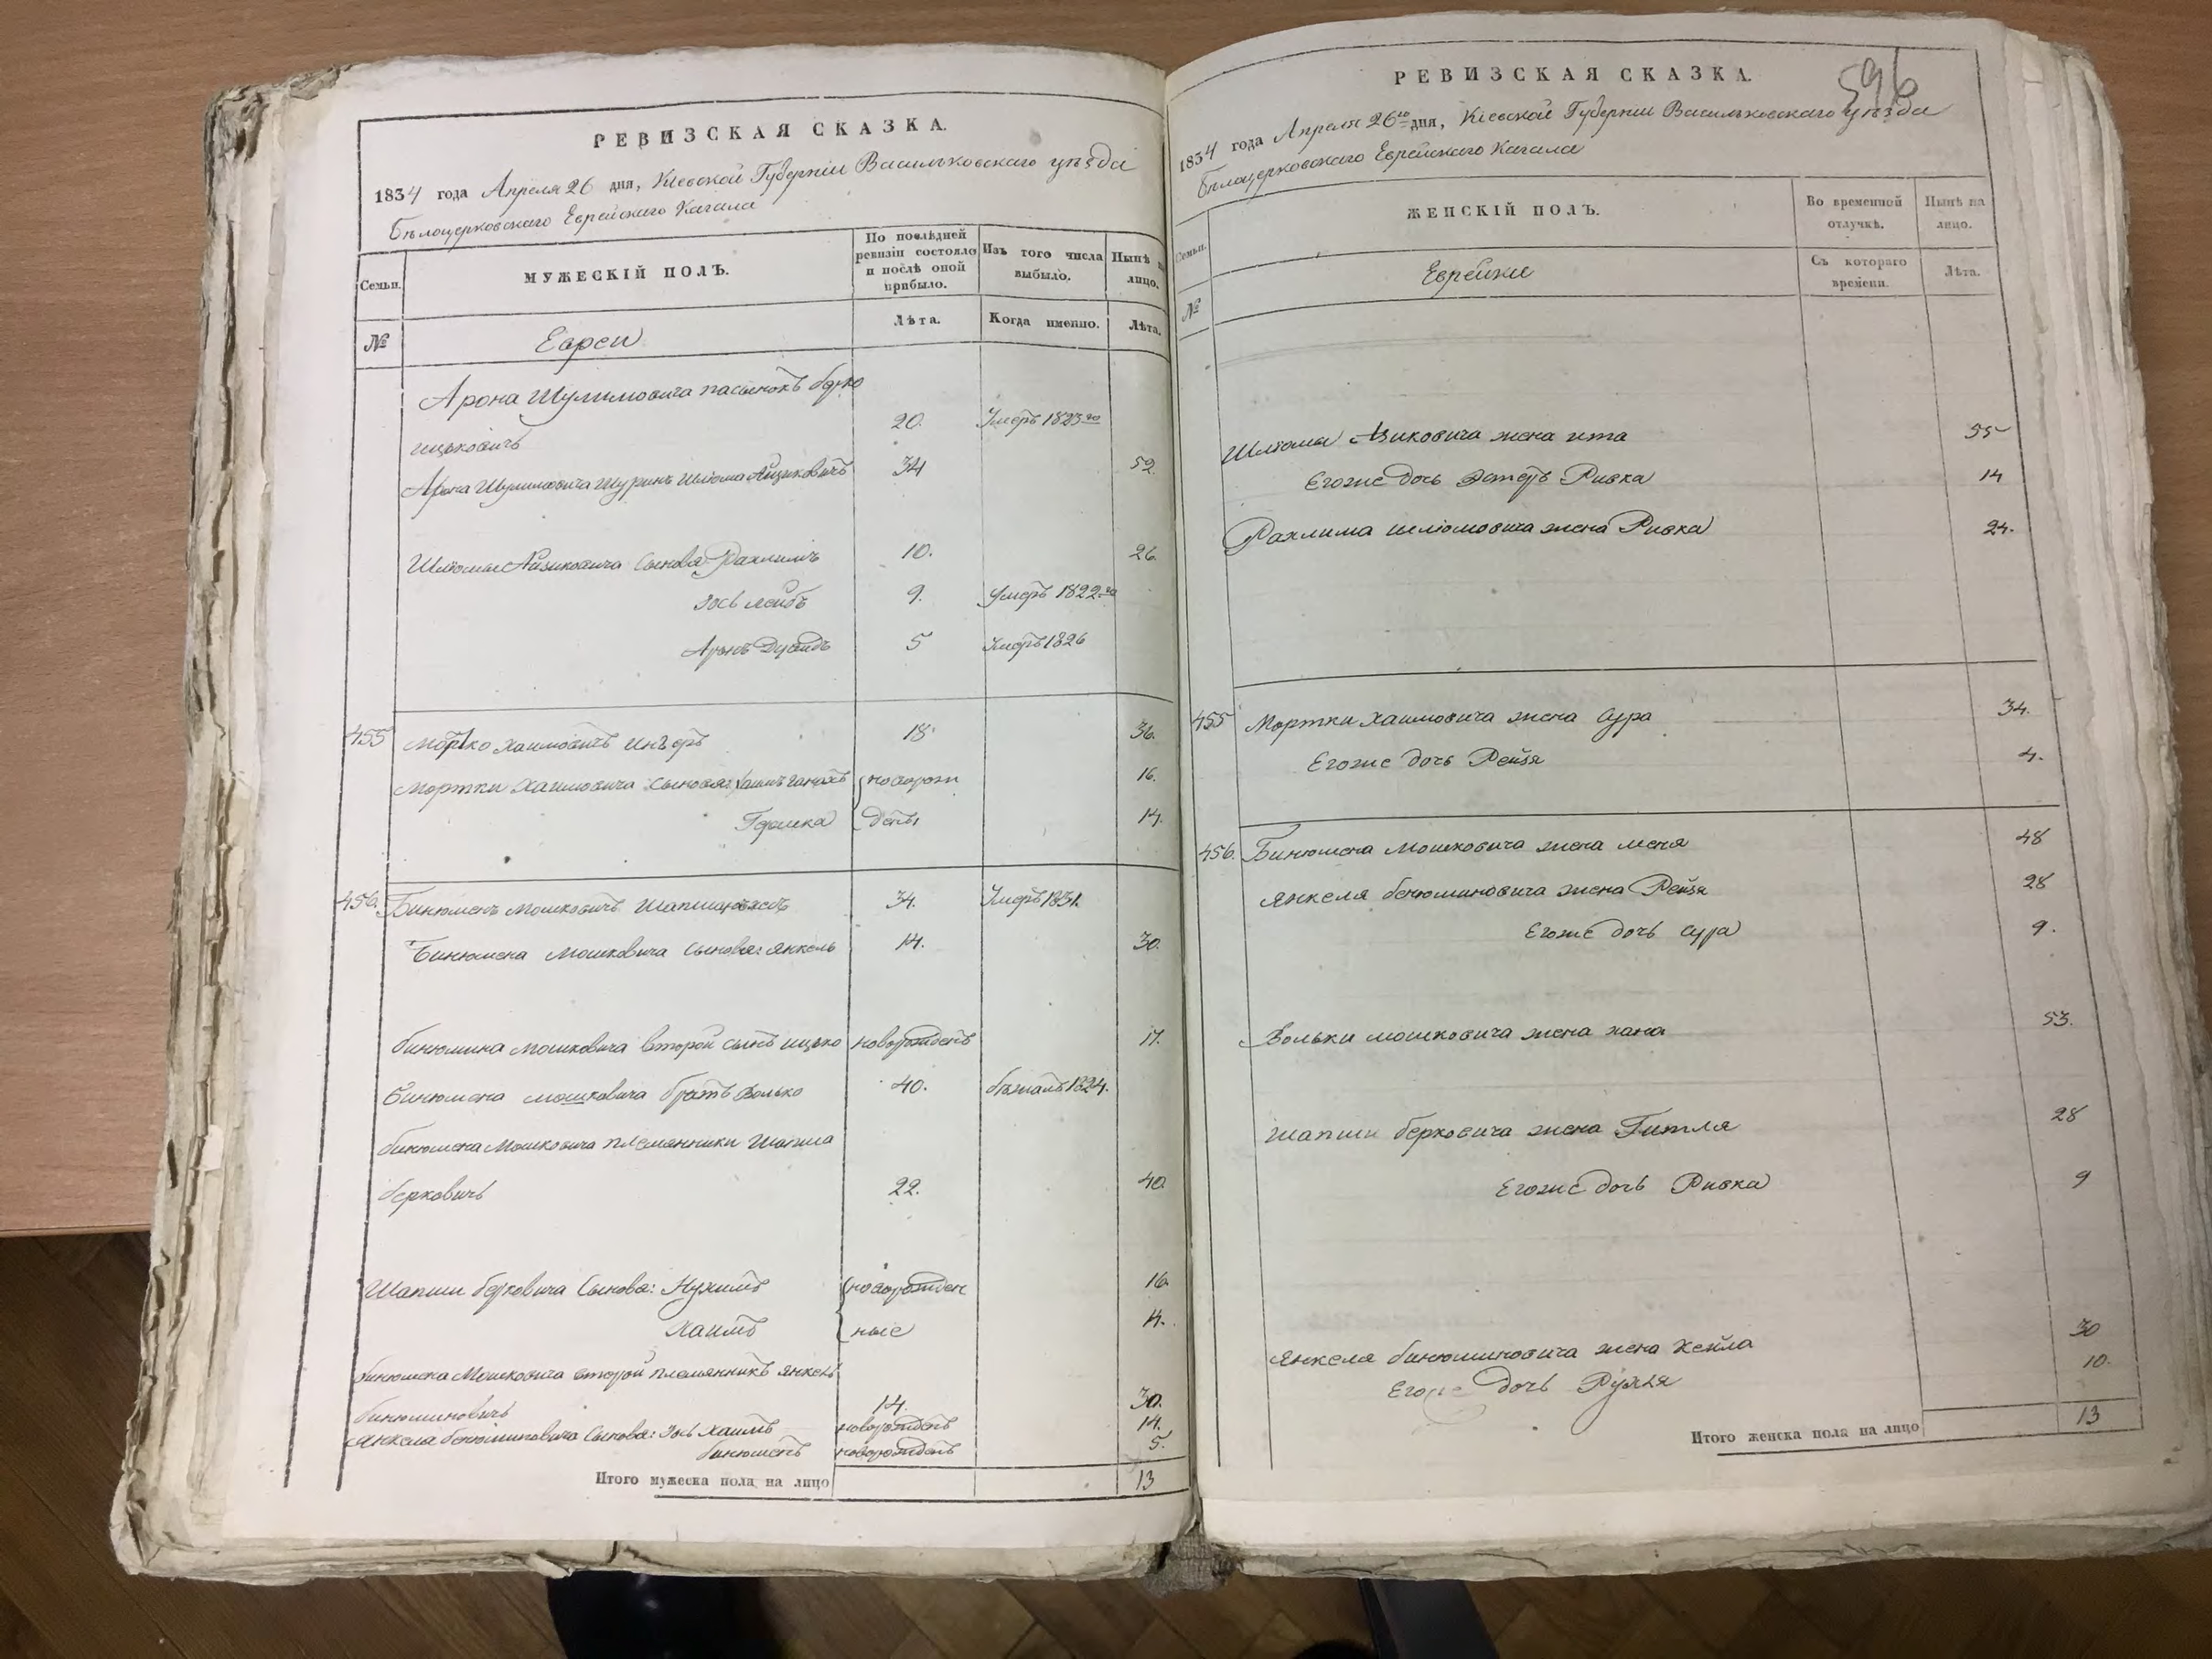 РЕВИЗСКАЯ СКАЗКА.
1834 года Апреля 26 дня, Кіевской Губерніи Васильковскаго уѣзда
Бѣлоцерковскаго Еврейскаго Кагала
Семьи.
МУЖЕСКІЙ ПОЛЪ.
По послѣдней ревизіи состояло и послѣ оной прибыло.
Изъ того числа выбыло.
Нынѣ на лицо.
№
Евреи
Лѣта.
Когда именно.
Лѣта.
Арона Шулимовича пасынокъ берко
ицковичъ 20. Умеръ 1823го
Арона Шулимовича Шуринъ Шлиома Айзиковичъ 34 52.
Шлиомы Айзиковича Сыновья Рахлимъ 10. 26.
Іось лейбъ 9. Умеръ 1822го
Аронъ Дувидъ 5 Умеръ 1826
455 Мортко Хаимовичъ 18 36.
Мортки Хаимовича Сыновья: новорож 16.
Гершка дены 14.
456. Бинюменъ Мошковичъ 34. Умеръ 1831.
Бинюмена Мошковича Сыновья: Янкель 14. 30.
бинюмина Мошковича второй сынъ ицко новорожденъ 17.
бинюмена мошковича братъ Волько 40. бѣжалъ 1824.
бинюмена Мошковича племянники Шапша
берковичъ 22. 40
Шапши берковича Сыновья: Нухимъ новорожден 16.
Хаимъ ные 14.
бинюмена Мошковича второй племянникъ янкель
бинюминовичъ 14. 30.
Янкеля бенюминовича Сыновья: Іось Хаимъ новорожденъ 14.
бинюменъ новорожденъ 5.
Итого мужеска пола на лицо 13
596
РЕВИЗСКАЯ СКАЗКА.
1834 года Апреля 26го дня, Кіевской Губерніи Васильковскаго уѣзда
Бѣлоцерковскаго Еврейскаго Кагала
Семьи.
ЖЕНСКІЙ ПОЛЪ.
Во временной отлучкѣ.
Нынѣ на лицо.
№
Еврейки
Съ котораго времени.
Лѣта.
Шлиомы Азиковича жена ита 55
Егоже дочь Эстеръ Ривка 14
Рахлима шлиомовича жена Ривка 24.
455 Мортки хаимовича жена Сура 34.
Егоже дочь Рейзя 4.
456. Бинюмена мошковича жена меня 48
янкеля бенюминовича жена Рейзя 28
Егоже дочь Сура 9.
Вольки мошковича жена хана 53.
шапши берковича жена Гитля 28
Егоже дочь Ривка 9
янкеля бинюминовича жена Хейла 30
Егоже дочь Рухля 10.
Итого женска пола на лицо 13